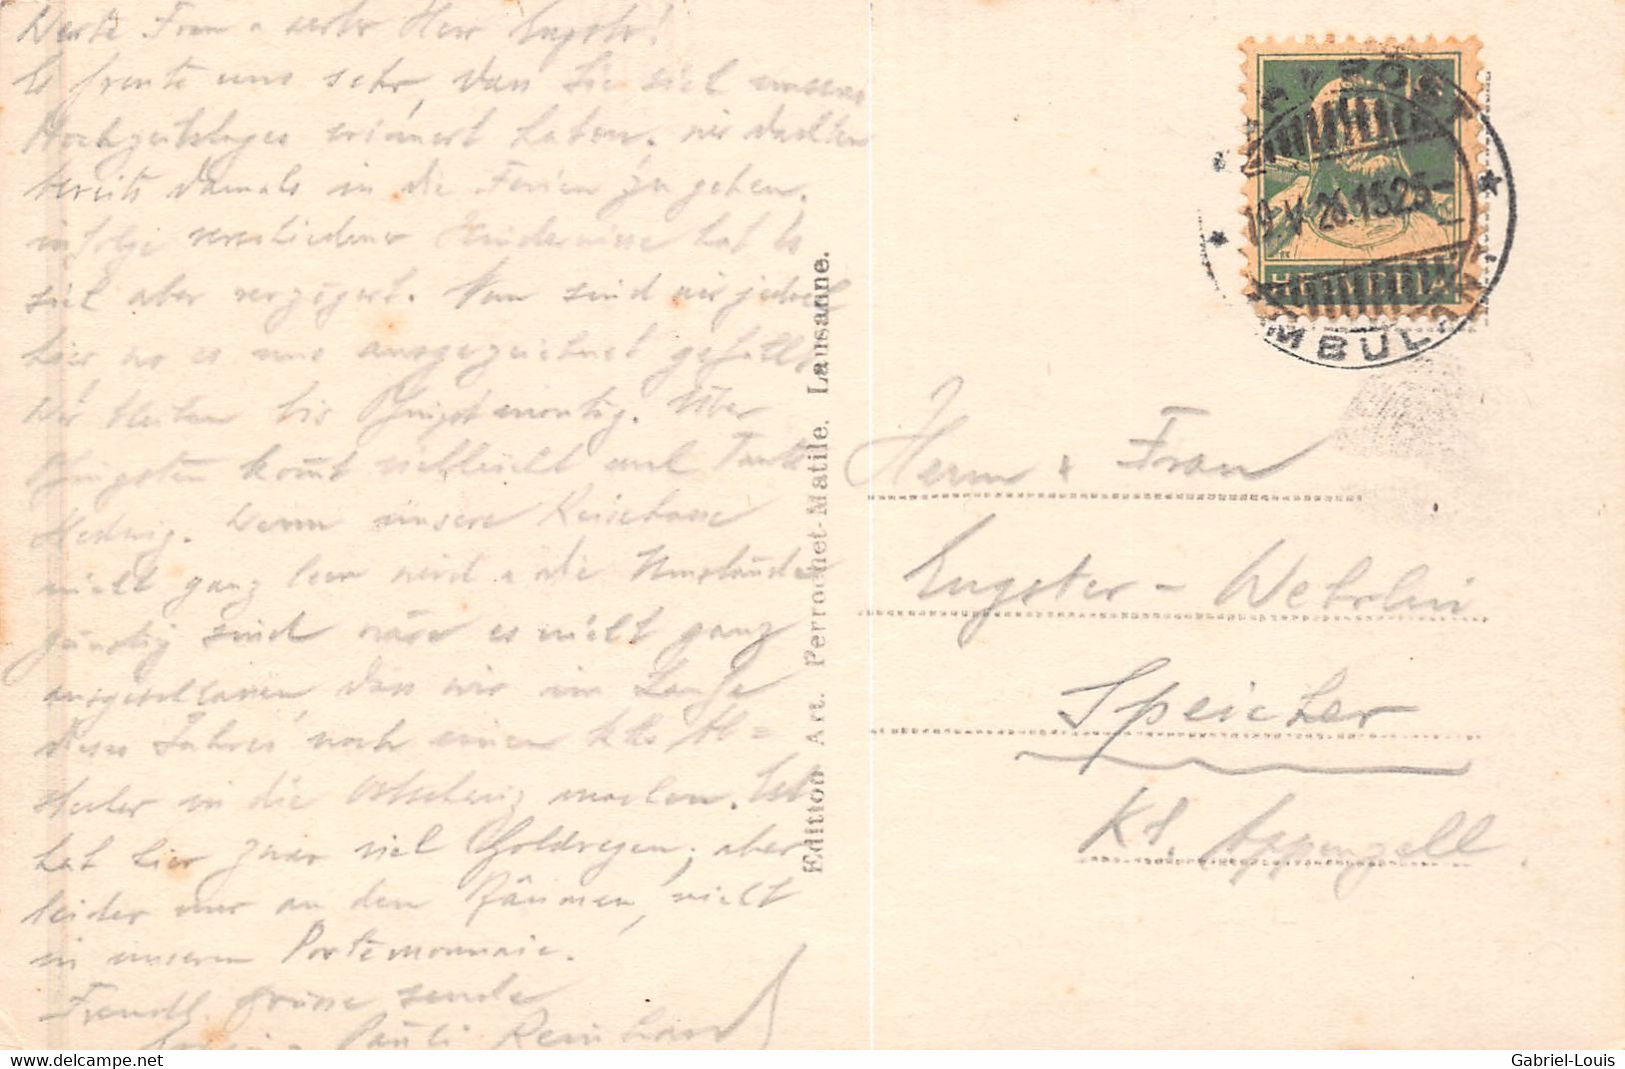 Werte Frau u werter Herr Eugster!
Es freute uns sehr, dass Sie sich unseres
Hochzeitstages erinnert haben. wir dachten
bereits damals in die Ferien zu gehen.
infolge verschiedener Hindernisse hat es
sich aber verzögert. Nun sind wir jedoch
hier wo es uns ausgezeichnet gefällt
Wir bleiben bis Pfingstmontag. Über
Pfingsten kommt vielleicht auch Tante
Hedwig. Wenn unsere Reisekasse
nicht ganz leer wird u die Umstände
günstig sind wäre es nicht ganz
ausgeschlossen, dass wir im Laufe
dieses Jahres noch einen Ab=
stecher in die Ostschweiz machen. Es
hat hier zwar viel Goldregen; aber
leider nur an den Bäumen, nicht
in unserem Portemonnaie.
Freundl. Grüsse sende
Pauli Reinhard
Edition Art. Perrochet-Matile. Lausanne.
19.V.26.1525
HELVETIA
AMBULANT
Herrn & Frau
Eugster-Wehrlin
Speicher
Kt. Appenzell.
delcampe.net
Gabriel-Louis